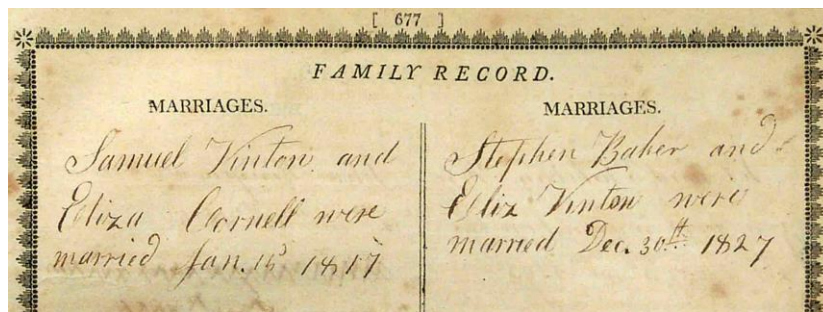 [ 677 ]
FAMILY RECORD.
MARRIAGES.
Samuel Vinton and
Eliza Cornell were
married Jan. 1817
MARRIAGES.
Stephen Baker and
Eliz Vinton were
married Dec. 30th 1827